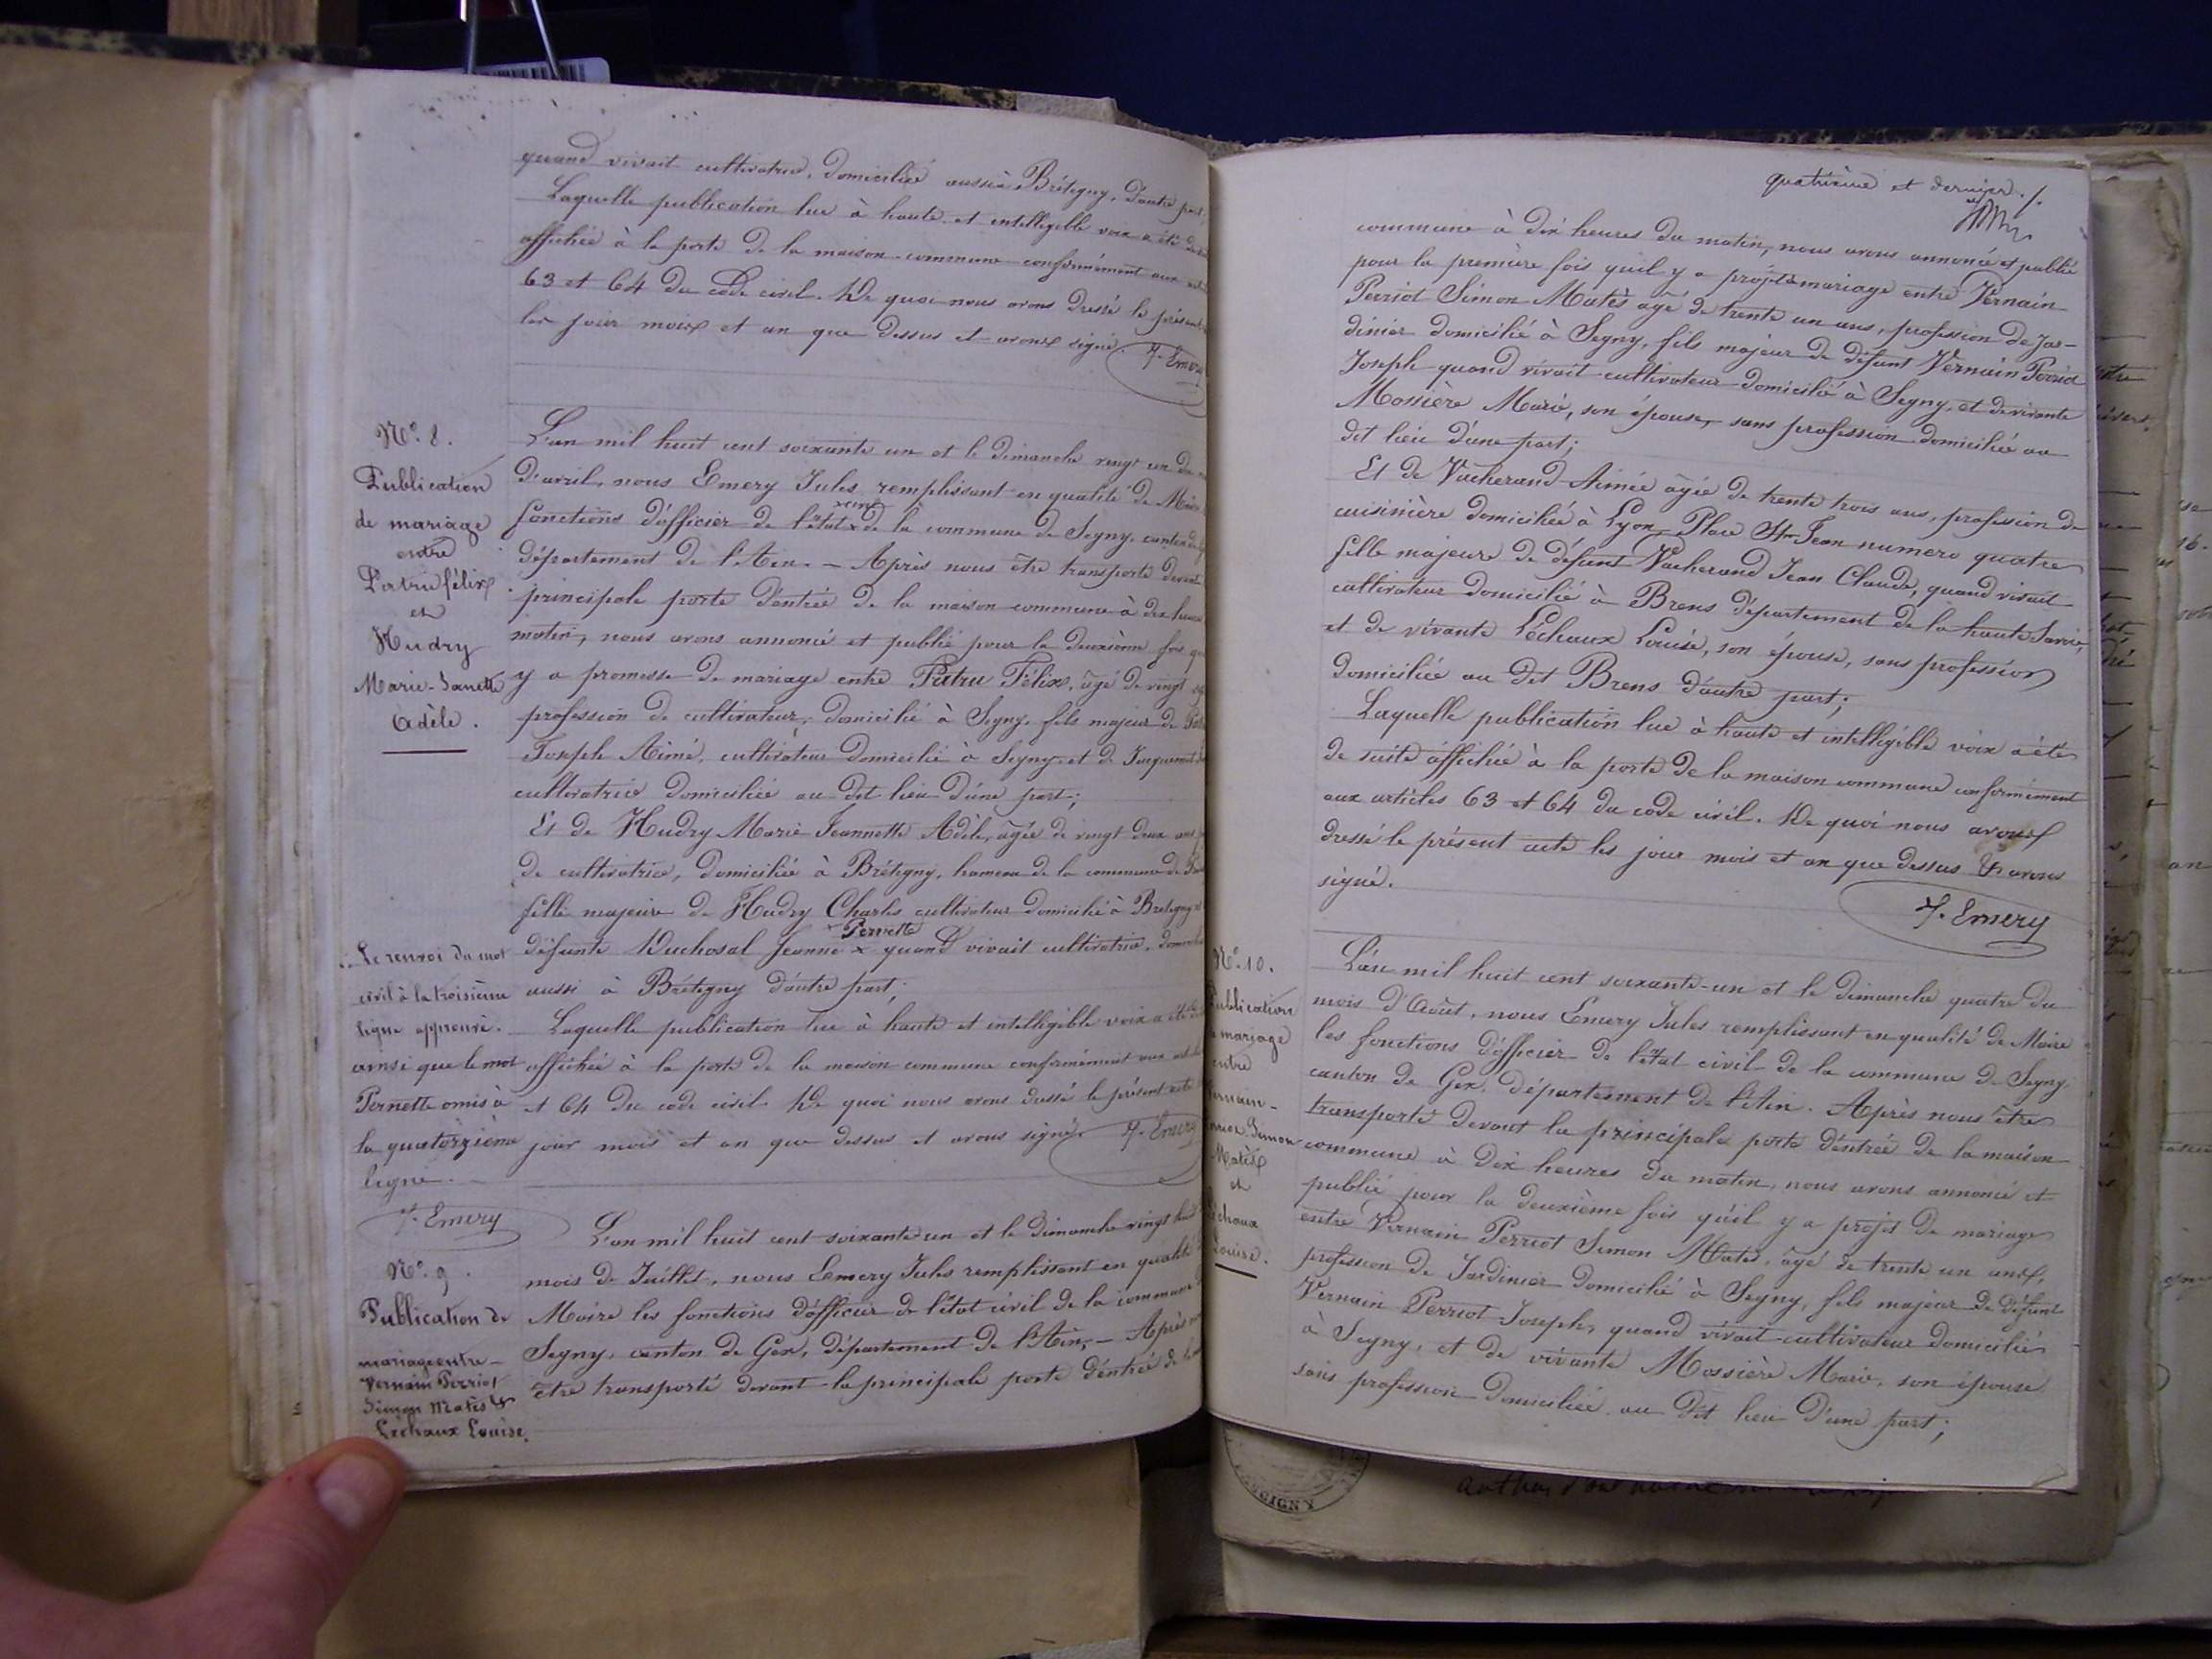 quand vivait cultivatrice, domiciliée aussi à Brétigny, d'autre part.
Laquelle publication lue à haute et intelligible voix a été de
affichée à la porte de la maison commune conformément aux
63 et 64 du code civil. De quoi nous avons dressé le présent
les jour mois et an que dessus et avons signé. J. Emery
N° 8.
Publication
de mariage
entre
Patru félix
et
Hudry
Marie-Janette
Adèle.
L'an mil huit cent soixante un et le dimanche vingt un du
d'avril, nous Emery Jules remplissant en qualité de Maire
civil
fonctions d'officier de l'état x de la commune de Segny, canton de
département de l'Ain. — Après nous être transporté devant
principale porte d'entrée de la maison commune à dix heures
matin, nous avons annoncé et publié pour la deuxième fois qu
y a promesse de mariage entre Patru Félix, âgé de vingt
profession de cultivateur, domicilié à Segny, fils majeur de
Joseph Aimé, cultivateur domicilié à Segny et de
cultivatrice domiciliée au dit lieu d'une part;
Et de Hudry Marie Jeannette Adèle, âgée de vingt deux ans
de cultivatrice, domiciliée à Brétigny, hameau de la commune de
fille majeure de Hudry Charles cultivateur domicilié à Bretigny
x Pernette
défunte Duchosal Jeanne x quand vivait cultivatrice, domiciliée
aussi à Brétigny d'autre part;
Laquelle publication lue à haute et intelligible voix a été
affichée à la porte de la maison commune conformément aux
et 64 du code civil. De quoi nous avons dressé le présent acte
jour mois et an que dessus et avons signé. J. Emery
Le renvoi du mot
civil à la troisième
ligne approuvé.
ainsi que le mot
Pernette omis à
la quatorzième
ligne.
J. Emery
N° 9.
Publication de
mariage entre
Vernain Perriot
Simon Matès &
Léchaux Louise.
L'an mil huit cent soixante un et le dimanche vingt huit
mois de Juillet, nous Emery Jules remplissant en qualité
Maire les fonctions d'officier de l'état civil de la commune
Segny, canton de Gex, département de l'Ain, — Après
être transporté devant la principale porte d'entrée de la
quatrième et dernier./.
commune à dix heures du matin, nous avons annoncé et publié
pour la première fois qu'il y a projet de mariage entre Vernain
Perriot Simon Matès âgé de trente un ans, profession de Jar-
dinier domicilié à Segny, fils majeur de défunt Vernain Perriot
Joseph quand vivait cultivateur domicilié à Segny, et de vivante
Mossière Marie, son épouse, sans profession domiciliée au
dit lieu d'une part;
Et de Vacherand Aimée âgée de trente trois ans, profession de
cuisinière domiciliée à Lyon Place St Jean numero quatre
fille majeure de défunt Vacherand Jean Claude, quand vivait
cultivateur domicilié à Brens département de la haute Savoie,
et de vivante Léchaux Louise, son épouse, sans profession
domiciliée au dit Brens d'autre part;
Laquelle publication lue à haute et intelligible voix a été
de suite affichée à la porte de la maison commune conformément
aux articles 63 et 64 du code civil. De quoi nous avons
dressé le présent acte les jour mois et an que dessus & avons
signé.
J. Emery
N° 10.
Publication
mariage
entre
Simon
Matès
et
Léchaux
Louise.
L'an mil huit cent soixante-un et le dimanche quatre du
mois d'Août, nous Emery Jules remplissant en qualité de Maire
les fonctions d'officier de l'état civil de la commune de Segny
canton de Gex, département de l'Ain. Après nous être
transporté devant la principale porte d'entrée de la maison
commune à dix heures du matin, nous avons annoncé et
publié pour la deuxième fois qu'il y a projet de mariage
entre Vernain Perriot Simon Matès, âgé de trente un ans,
profession de Jardinier domicilié à Segny, fils majeur de défunt
Vernain Perriot Joseph, quand vivait cultivateur domicilié
à Segny, et de vivante Mossière Marie, son épouse
sans profession domiciliée au dit lieu d'une part;